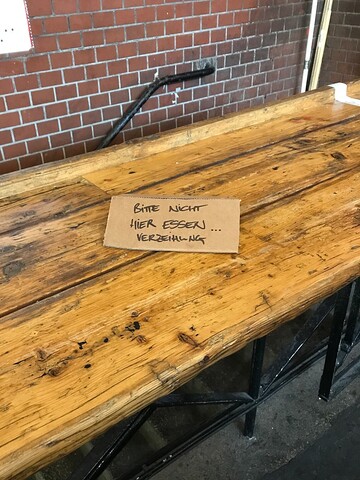 BITTE NICHT
HIER ESSEN ...
VERZEIHUNG